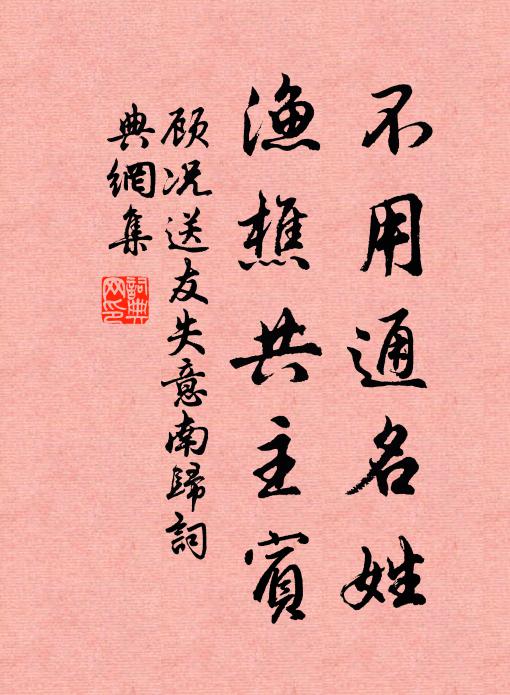 不用通名姓
渔樵共主宾
顾况送友失意南歸詞
典網集
詞典网印